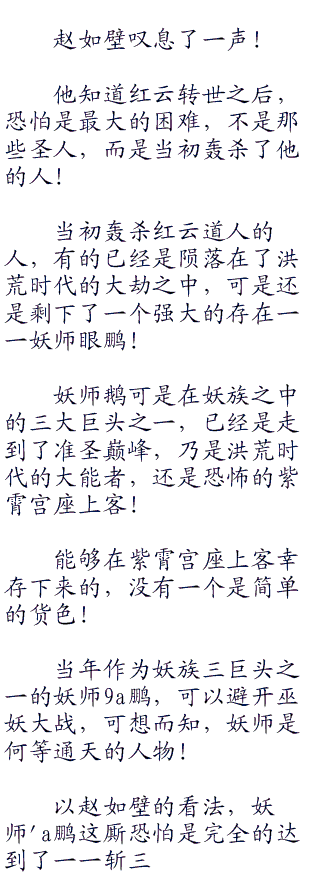 赵如壁叹息了一声！
他知道红云转世之后，
恐怕是最大的困难，不是那
些圣人，而是当初轰杀了他
的人！
当初轰杀红云道人的
人，有的已经是陨落在了洪
荒时代的大劫之中，可是还
是剩下了一个强大的存在一
一妖师眼鹏！
妖师鹅可是在妖族之中
的三大巨头之一，已经是走
到了准圣巅峰，乃是洪荒时
代的大能者，还是恐怖的紫
霄宫座上客！
能够在紫霄宫座上客幸
存下来的，没有一个是简单
的货色！
当年作为妖族三巨头之
一的妖师9a鹏，可以避开巫
妖大战，可想而知，妖师是
何等通天的人物！
以赵如壁的看法，妖
师′a鹏这厮恐怕是完全的达
到了一一斩三